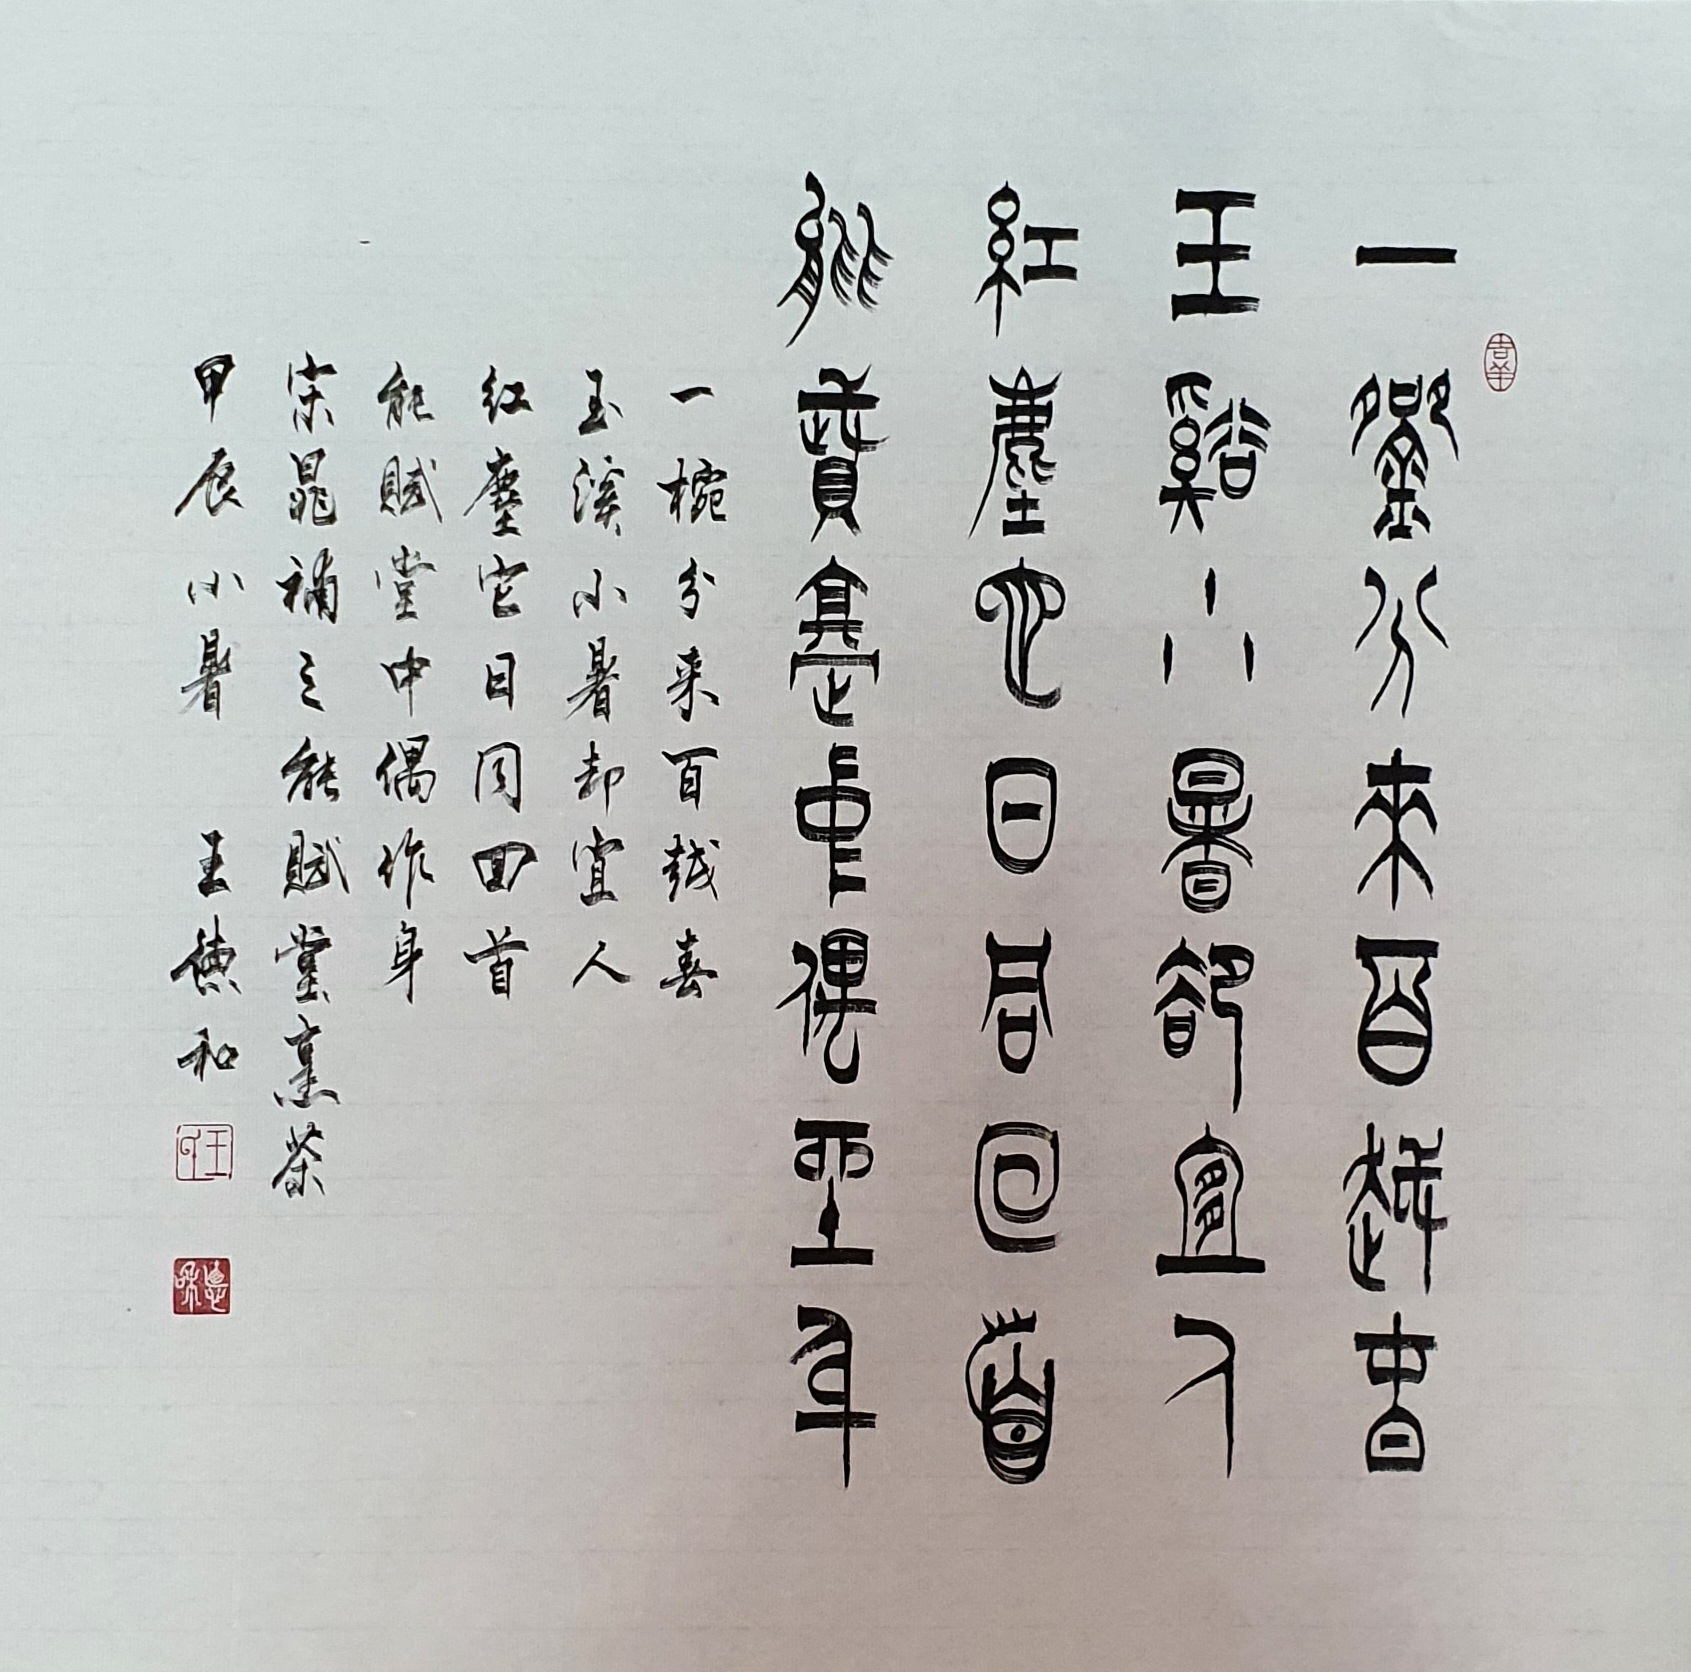 一盌分来百越春
玉谿小暑卻宜人
紅塵它日同回首
能賦堂中偶坐身
一椀分来百越春
玉溪小暑却宜人
红塵它日同回首
能赋堂中偶作身
宋晁補之能赋堂烹茶
甲辰小暑 王德和